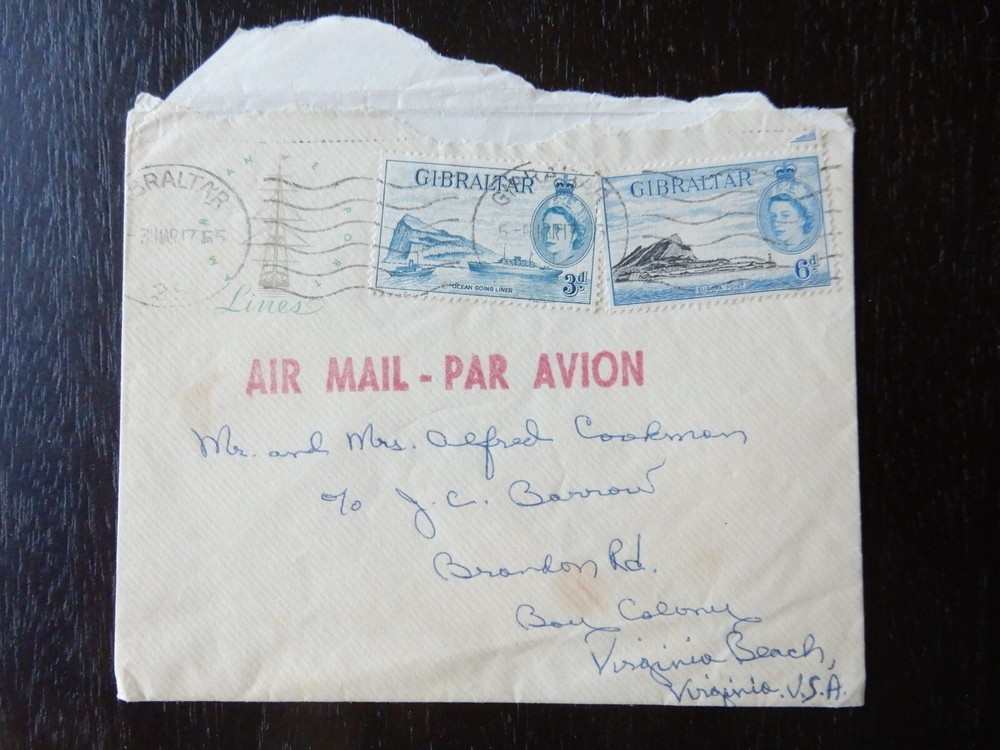 GIBRALTAR
GIBRALTAR
GIBRALTAR
MAR 17 55
Lines
OCEAN GOING LINER
3d
EUROPA POINT
6d
AIR MAIL - PAR AVION
Mr. and Mrs. Alfred Cookman
c/o J. C. Barrow
Brandon Rd.
Bay Colony
Virginia Beach,
Virginia. U.S.A.